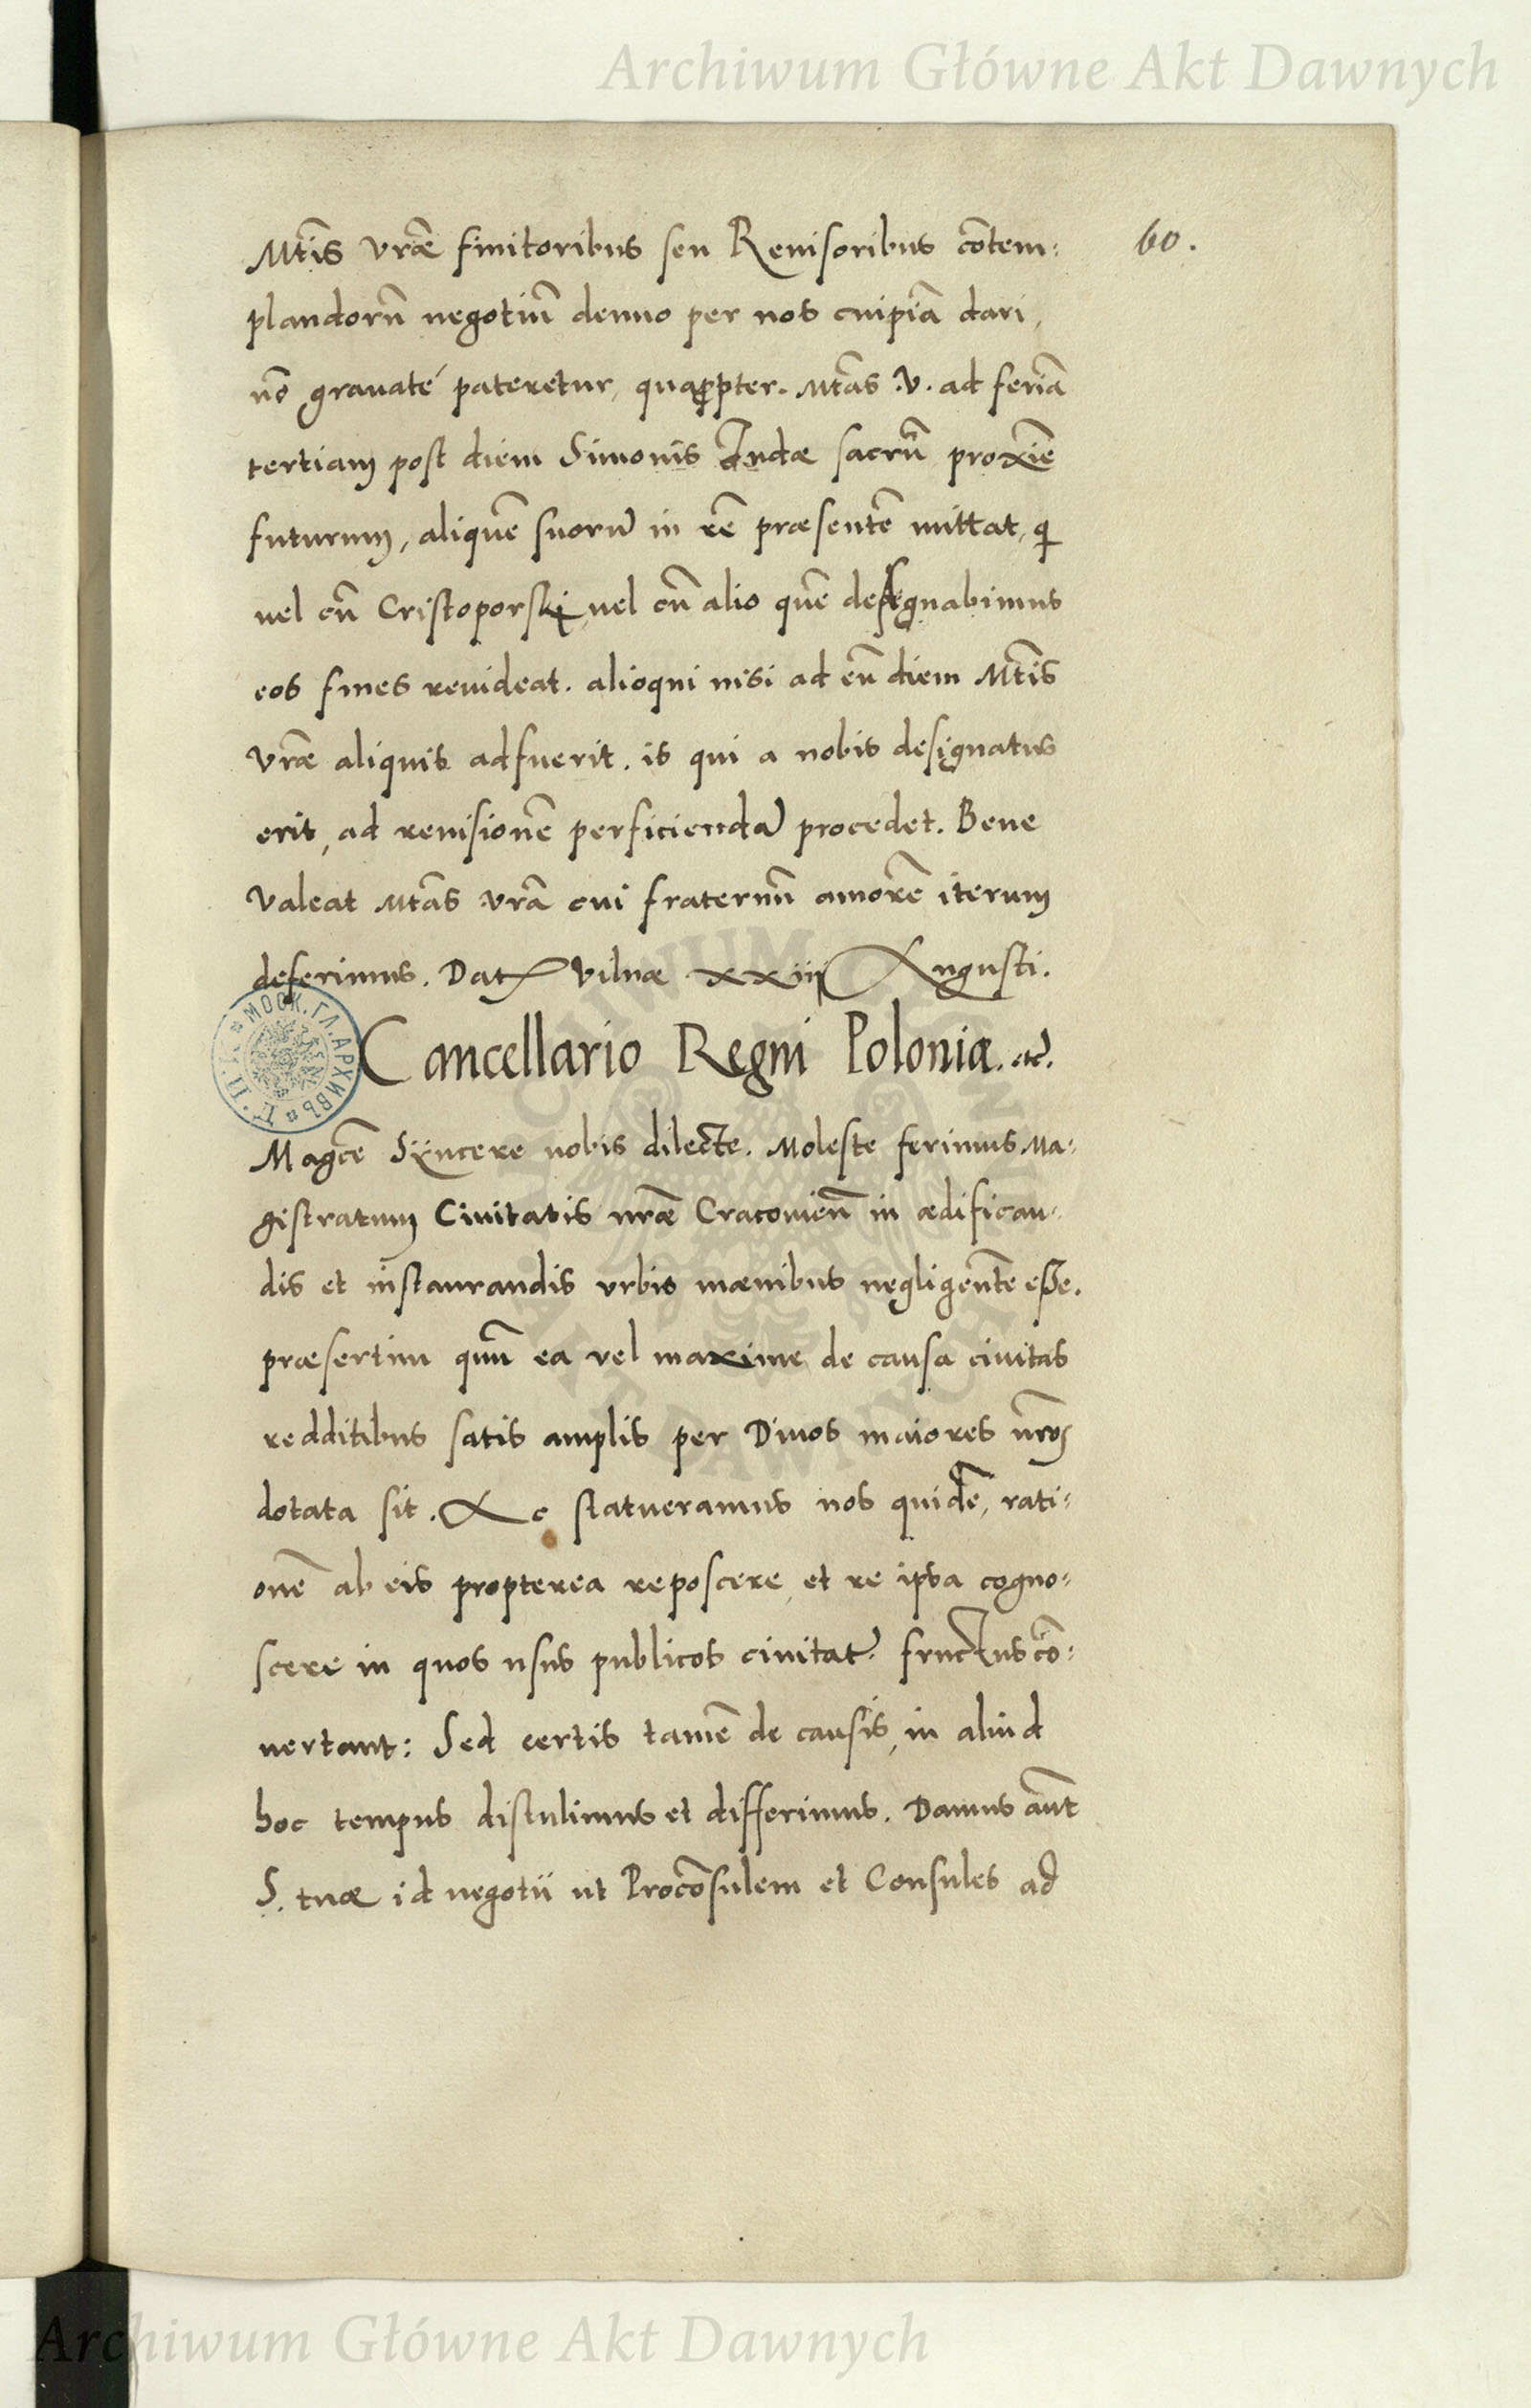 Archiwum Główne Akt Dawnych
60.
Mt̃is vræ̃ finitoribus seu Reuisoribus cõtem:
plandorũ negotiũ denuo per nos cuipiã dari,
nõ grauaté pateretur, quapropter. Mtãs .V. ad feriã
tertiam post diem Simonis Iudæ sacrũ proxiẽ
futurum, aliquẽ suorũ in rẽ præsentẽ mittat, qi
uel cũ Cristoporski, uel cũ alio quẽ designabimus
eos fines reuideat. alioqui nisi ad eũ diem Mt̃is
Vræ̃ aliquis adfuerit. is qui a nobis designatus
erit, ad reuisionẽ perficiendã procedet. Bene
Valeat Mtãs vrã cui fraternũ amorẽ iterum
deferimus. Dat Vilnæ xxiiij Augusti.
МОСК. ГЛ. АРХИВЪ
Cancellario Regni Poloniæ. etc̃.
Magcẽ Sÿncere nobis dilecte. Moleste ferimus Ma:
gistratum Ciuitatis nræ̃ Cracouieñ in ædifican:
dis et instaurandis vrbis mænibus negligentẽ esse.
præsertim quũ ea vel maxime de causa ciuitas
redditibus satis amplis per Diuos maiores nr̃os
dotata sit. Ac statueramus nos quidẽ, rati:
onẽ ab eis propterea reposcere, et re ipsa cogno:
scere in quos usus publicos ciuitat. fructus cõ:
uertant: Sed certis tamẽ de causis, in aliud
hoc tempus distulimus et differimus. Damus aũt
S. tuæ id negotii ut Procõsulem et Consules ad
Archiwum Główne Akt Dawnych